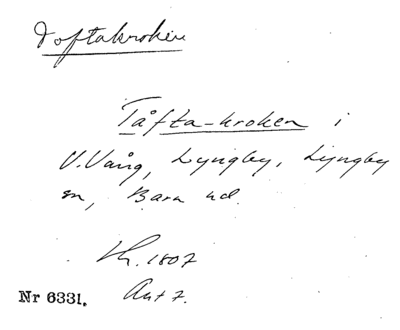 Doftakroken
Tåfta-kroken i
V.Vång, Lyngby, Lyngby
sn, Bara hd.
Lh. 1807
Akt 7.
Nr 6331.